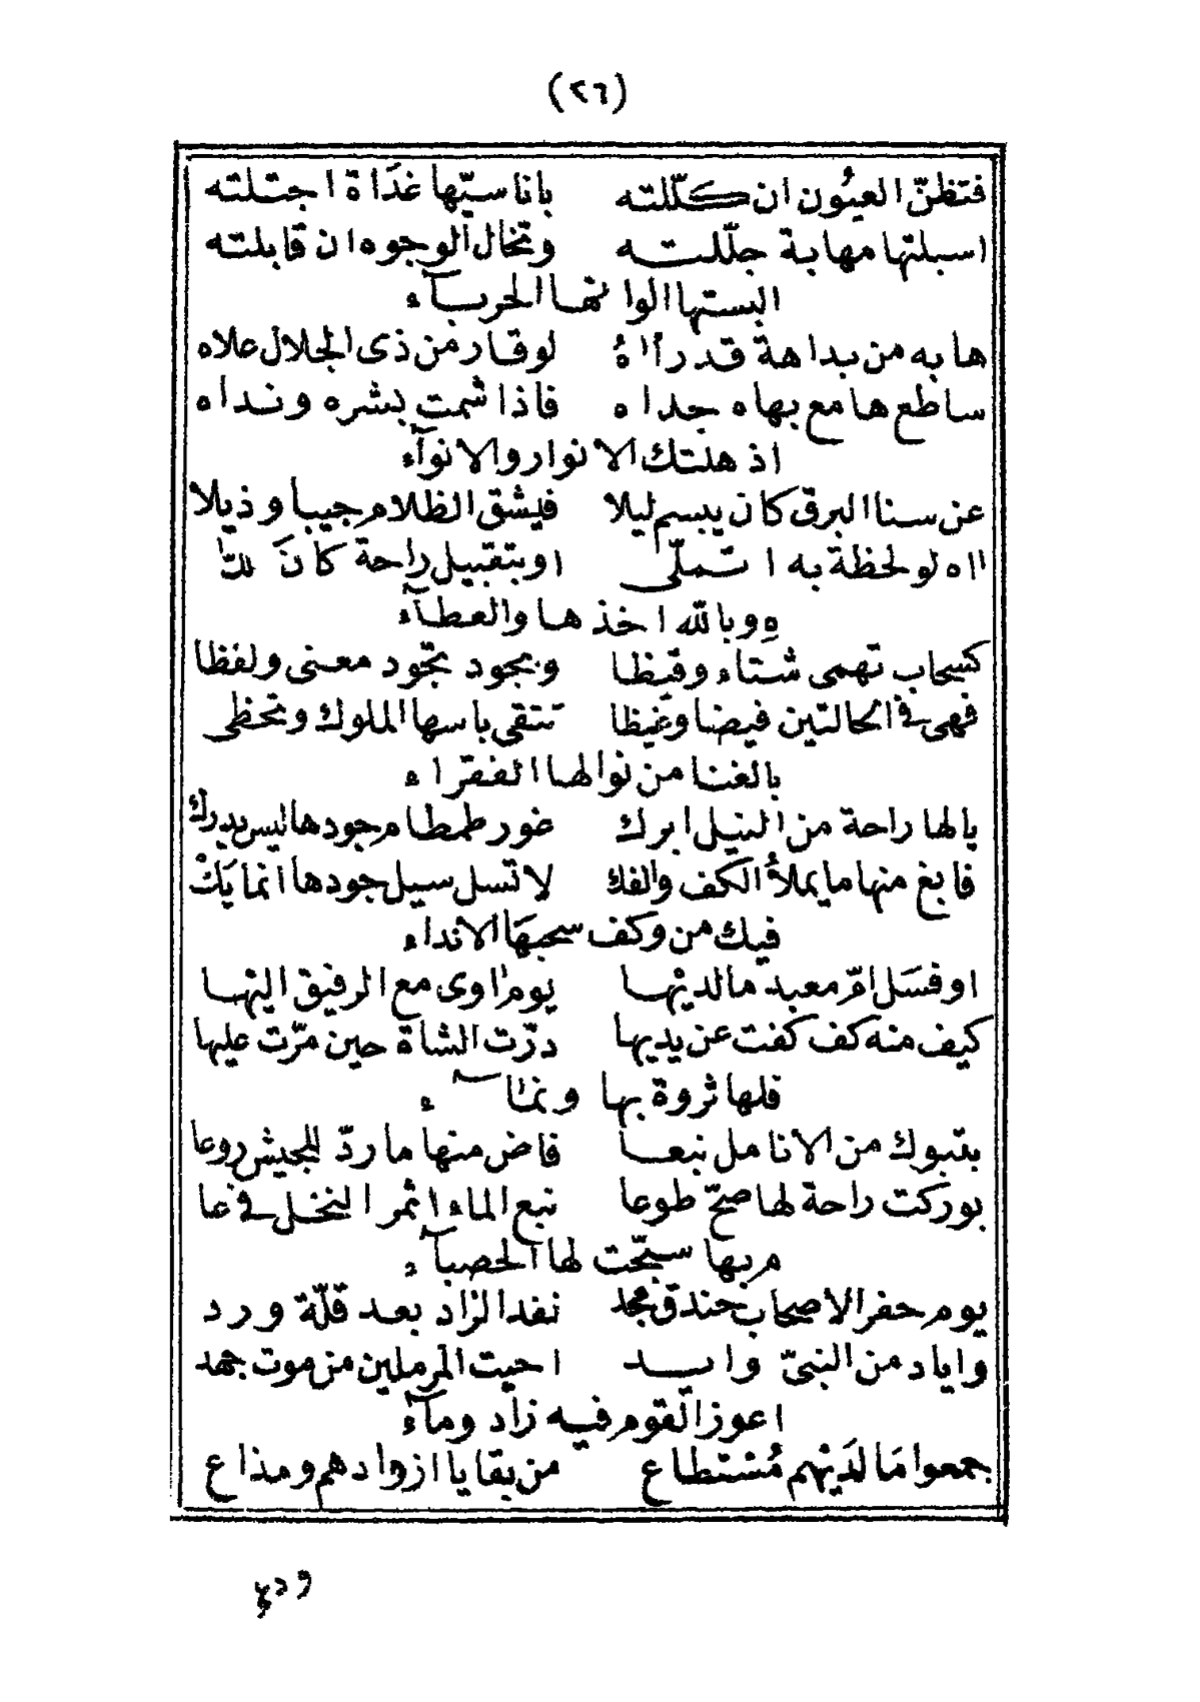 (٢٦)
فتظنّ العيُون ان كلّلته بانا سيّها غدَاة اجتلته
اسبلتها مهابة جلّلته وتخال الوجوه ان قابلته
البستها الوانها الحرباۤء
هابه من بداهة قدرأاهُ لوقار من ذى الجلال علاه
ساطع ها مع بهاه جداه فاذا شمت بشره ونداه
اذهلتك الانوار والانوآء
عن سنا البرق كان يبسم ليلا فيشق الظلام جيبا وذيلا
ااه لو لحظة به اتملّى اوبتقبيل راحة كانَ لله
ِه وبالله اخذها والعطآء
كسحاب تهمى شتاء وقيظا وبجود تجّود معنى ولفظا
فهى فى الحالتين فيضا وغيظا تتقى باسها الملوك وتحظى
بالغنا من نوالها الفقراء
يالها راحة من النيل ابرك غور طمطام جودها ليس يدرك
فابغ منها ما يملأ الكف والفك لا تسل سيل جودها انما يَكْ
فيك من وكف سحبهَا الانداء
او فسَل امّ معبد مالديْها يوم اوى مع الرفيق اليْها
كيف منه كف كفت عن يديها درّت الشاة حين مرّت عليها
فلها ثروة بها ونماۤء
بتبوك من الانامل نبعا فاض منها ما ردّ للجيش روعا
بوركت راحة لها صحّ طوعا نبع الماء اثمر النخل فى عا
م بها سبّحت لها الحصباۤء
يوم حفر الاصحاب خندق مجد نفد الزاد بعد قلّة ورد
واياد من النبىّ وايد احيت المرملين من موت جهد
اعوز القوم فيه زاد ومآء
جمعوا مَا لدَيْهم مُسْتطاع من بقايا ازوادهم ومذاع